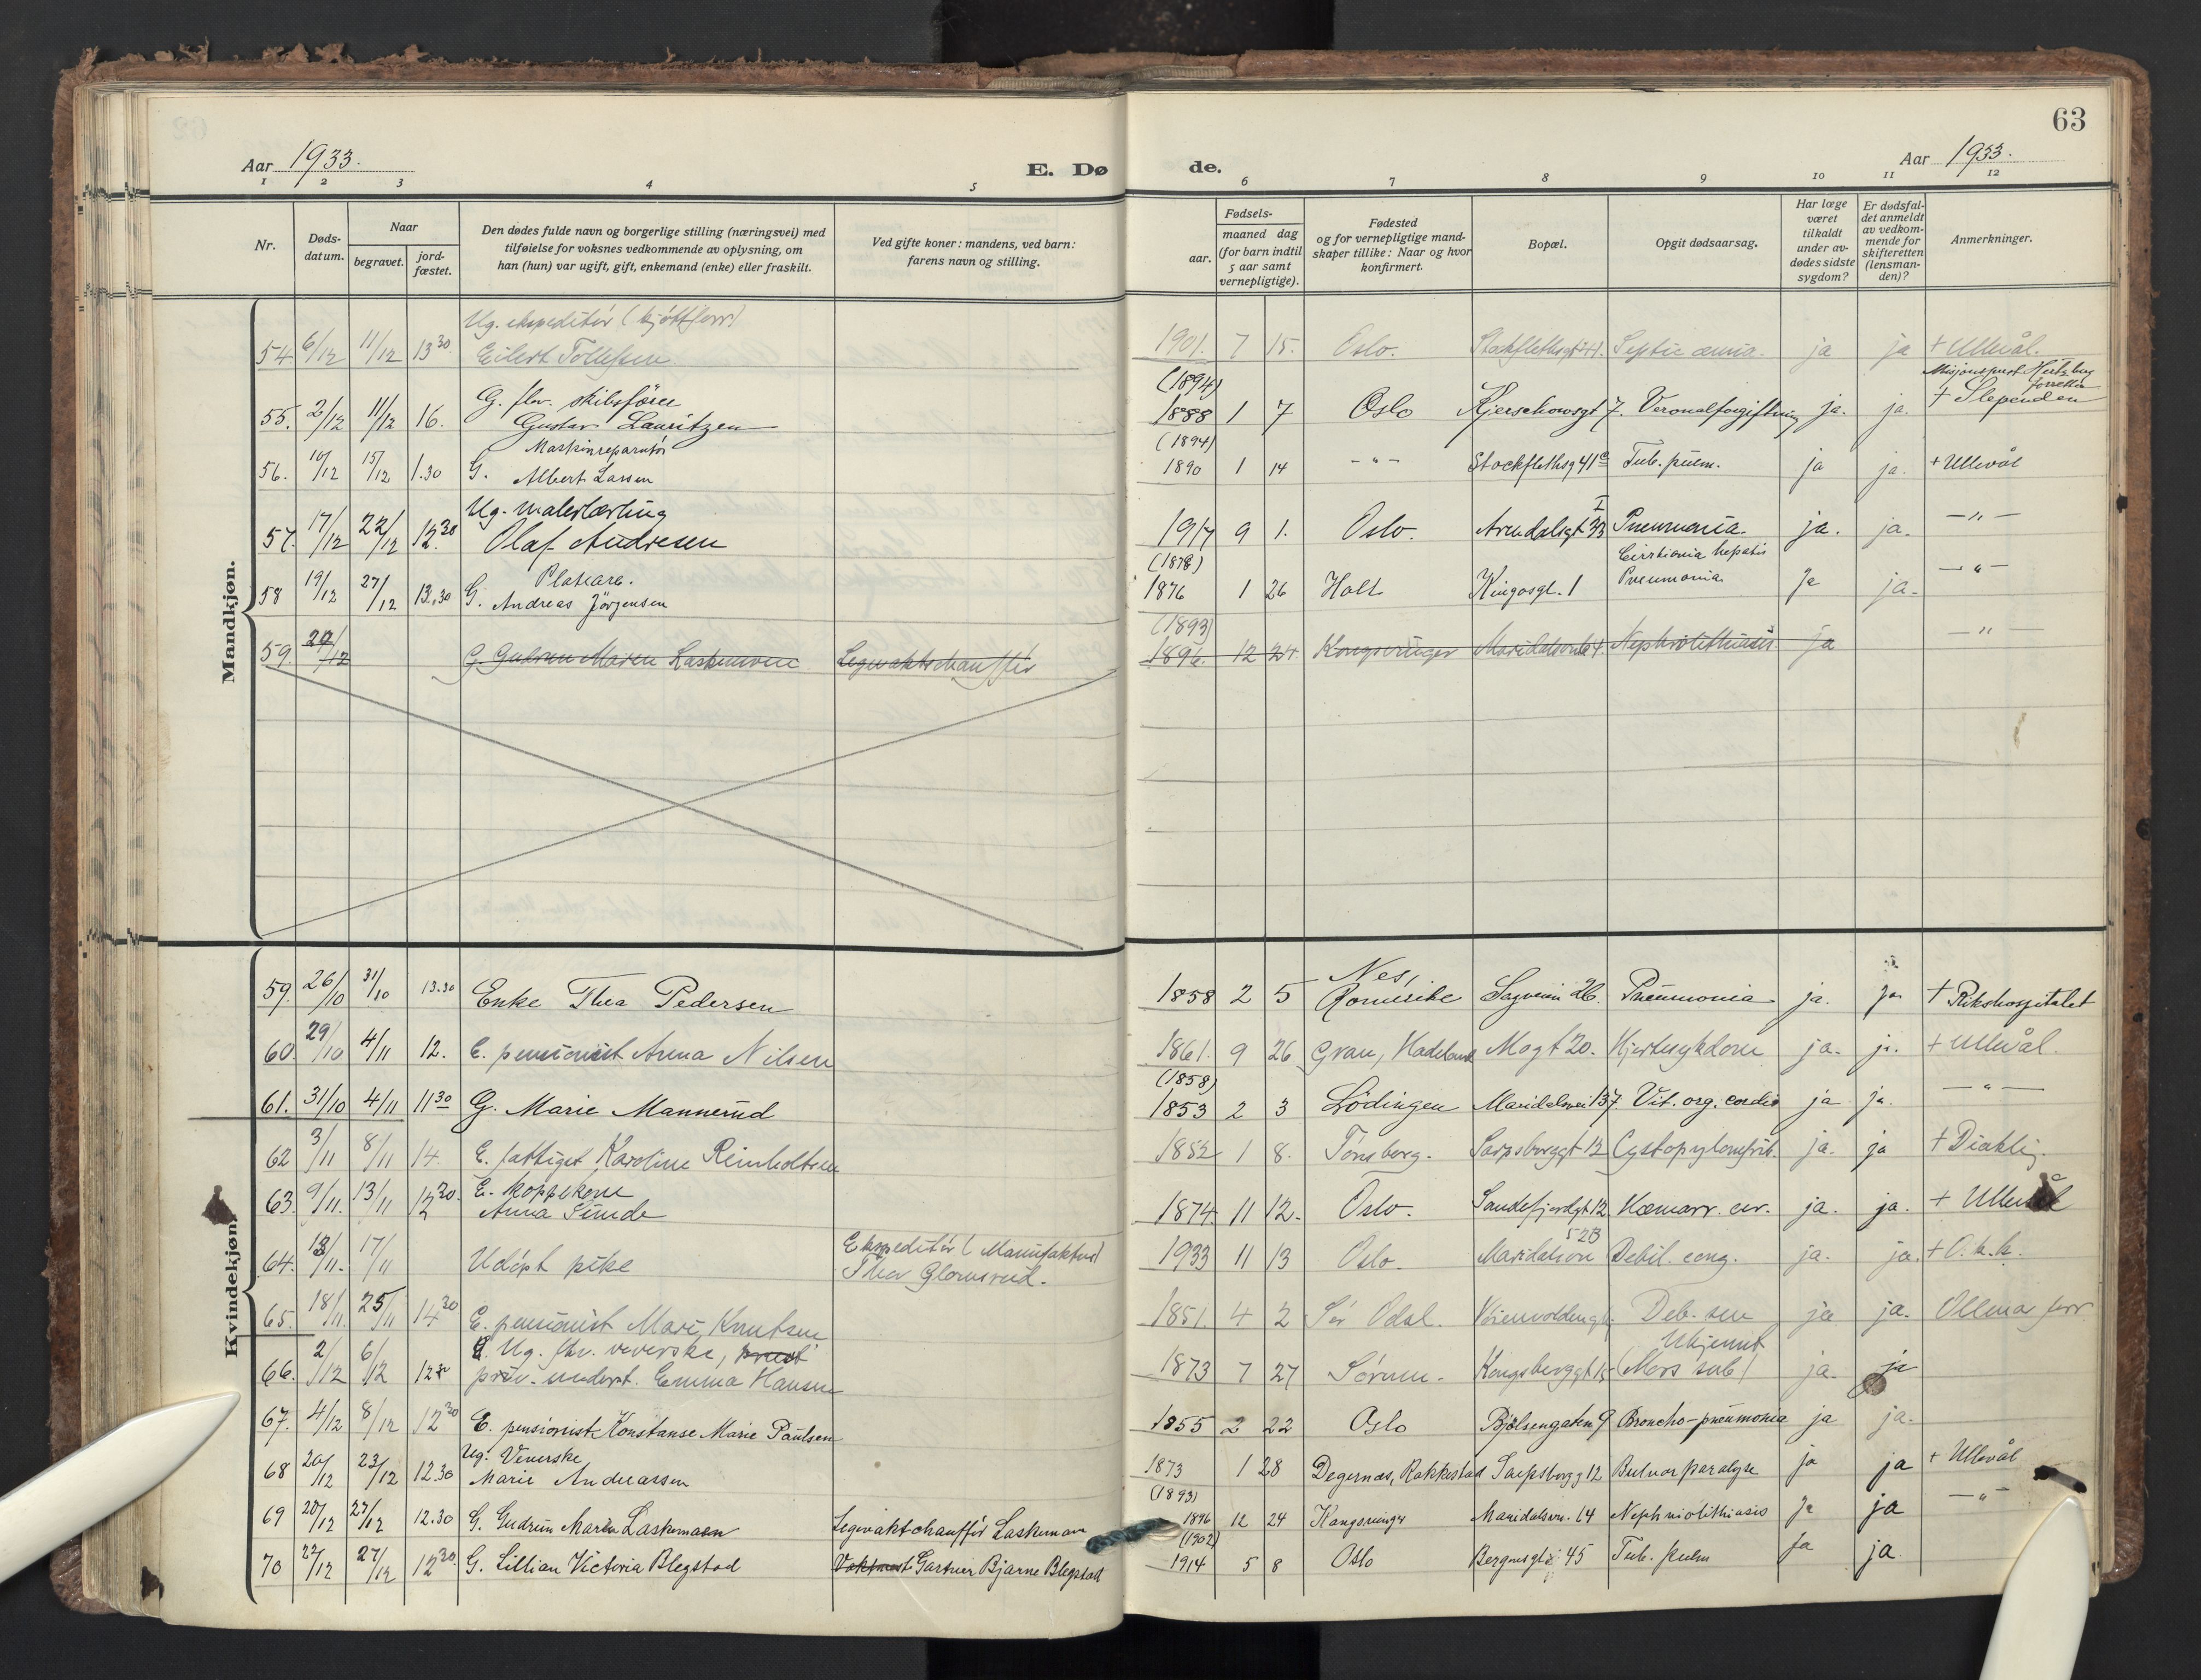 63
Aar 1933. E. Dø de. Aar 1933.
1 2 3 4 5 6 7 8 9 10 11 12
Nr.
Døds-
datum.
Naar
begravet.
jord-
fæstet.
Den dødes fulde navn og borgerlige stilling (næringsvei) med
tilføielse for voksnes vedkommende av oplysning, om
han (hun) var ugift, gift, enkemand (enke) eller fraskilt.
Ved gifte koner: mandens, ved barn:
farens navn og stilling.
Fødsels-
aar.
maaned dag
(for barn indtil
5 aar samt
vernepligtige).
Fødested
og for vernepligtige mand-
skaper tillike: Naar og hvor
konfirmert.
Bopæl.
Opgit dødsaarsag.
Har læge
været
tilkaldt
under av-
dødes sidste
sygdom?
Er dødsfal-
det anmeldt
av vedkom-
mende for
skifteretten
(lensman-
den)?
Anmerkninger.
Mandkjøn.
Ug. ekspeditör (kjöttforr)
54. 6/12 11/12 13 30 Eilert Tollefsen 1901. 7 15. Oslo. Stockflethsgt 41. Septicæmia. ja ja + Ullevål.
(1894) Misjonsprest Hertzberg
forrettet
G. flv. skibsförer
55. 2/12 11/12 16. Gustav Lauritzen 1888 1 7 Oslo Kjerschowsgt 7. Veronalforgiftning ja. ja. + Slependen
Maskinreparatör (1894)
56. 10/12 15/12 1.30 G. Albert Larsen 1890 1 14 - " - Stockflethsg 41 c Tub. pulm. ja ja. + Ullevål
Ug. malerlærling
57. 17/12 22/12 12 30 Olaf Andresen 1917 9 1. Oslo. Arendalsgt 33 I Pneumonia. ja. ja. - " -
Platearb. (1878) hepatis
58 19/12 27/12 13.30 G. Andreas Jörgensen 1876 1 26 Holt Kingosgt. 1 Pneumonia ja ja. - " -
(1893)
59. 20/12 G. Gudrun Maren Laskemoen Legevaktschaufför 1896. 12 24. Kongsvinger Maridalsvn 64. Nephrolithiasis ja - " -
Kvindekjøn.
59. 26/10 31/10 13.30 Enke Thea Pedersen 1858 2 5 Nes, Romerike Sagveien 26. Pneumonia ja. ja + Rikshospitalet
60. 29/10 4/11 12. E. pensionist Anna Nilsen 1861. 9 26 Gran, Hadeland Mogt 20. Hjertesykdom ja. ja. + Ullevål.
(1858)
61. 31/10 4/11 11 30 G. Marie Mannerud 1853 2 3 Lödingen Maridalsvei 137. Vit. org. cordis ja ja. - " -
62 3/11 8/11 14. E. fattiget Karoline Reinholtsen 1852 1 8. Tönsberg. Sarpsborggt 12 ja. ja
63. 9/11. 13/11 12 30. E. koppekone
Anna Sunde 1874 11 12. Oslo. Sandefjordgt 12 Hæmorr. cer. ja. ja. + Ullevål
64. 13/11. 17/11 Udöpt pike Ekspeditör (Manufaktur)
Thor Glomsrud. 1933 11 13 Oslo. Maridalsvn 52B Debil. cong. ja. ja. + O.k.k.
65. 18/11. 25/11 14 30 E. pensionist Mari Knutsen 1851. 4 2 Sör Odal. Deb. sen ja ja.
E. Ug. fhv. veverske,
66. 2/12 6/12 12 30 priv. underst. Emma Hansen 1873 7 27 Sörum. Kongsberggt 15 Ukjent
(Mors sub) ja. ja
67. 4/12 8/12 12 30 E. pensionist Konstanse Marie Paulsen 1855 2 22 Oslo Bjölsengaten 9 Broncho-pneumonia ja ja.
Ug. Veverske
68 20/12 23/12 12.30 Marie Andreassen 1873 1 28 Degernes, Rakkestad Sarpsborgg 12 Bulvar paralyse ja ja + Ullevål
(1893)
69 20/12 27/12 12.30 G. Gudrun Maren Laskemoen Legevaktchaufför Laskemoen 1896 12 24 Kongsvinger Maridalsvn. 64 Nephriolithiasis ja ja - " -
(1902)
70 22/12 27/12 12 30. G. Lillian Victoria Blegstad Vaktmest Gartner Bjarne Blegstad 1914 5 8 Oslo Bergensgt 45 Tub. pulm ja ja